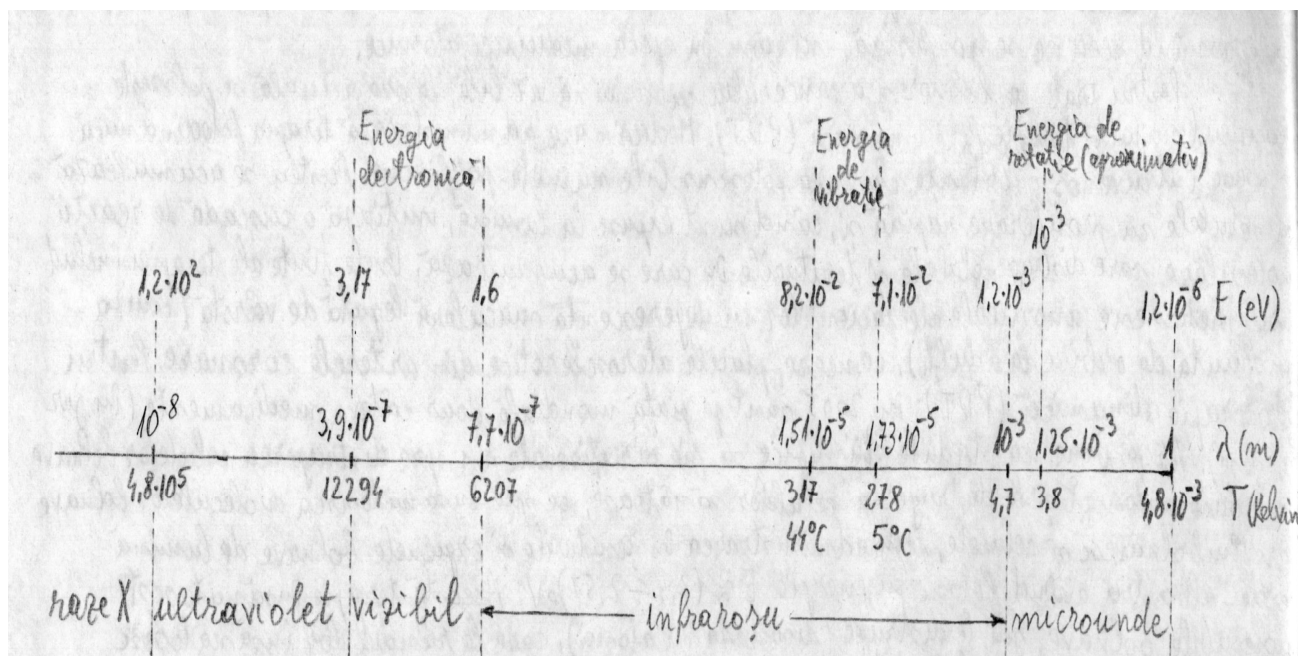 Energia
electronică
Energia
de
vibrație
Energia de
rotație (aproximativ)
10⁻³
1,2·10² 3,17 1,6 8,2·10⁻² 7,1·10⁻² 1,2·10⁻³ 1,2·10⁻⁶ E (eV)
10⁻⁸ 3,9·10⁻⁷ 7,7·10⁻⁷ 1,51·10⁻⁵ 1,73·10⁻⁵ 10⁻³ 1,25·10⁻³ 1 λ (m)
4,8·10⁵ 12294 6207 317 278 4,7 3,8 4,8·10⁻³ T (Kelvin
44°C 5°C
raze X ultraviolet vizibil infraroșu microunde